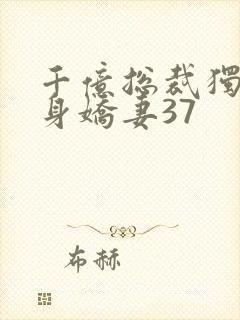 千億總裁獨
身嬌妻37
布赫